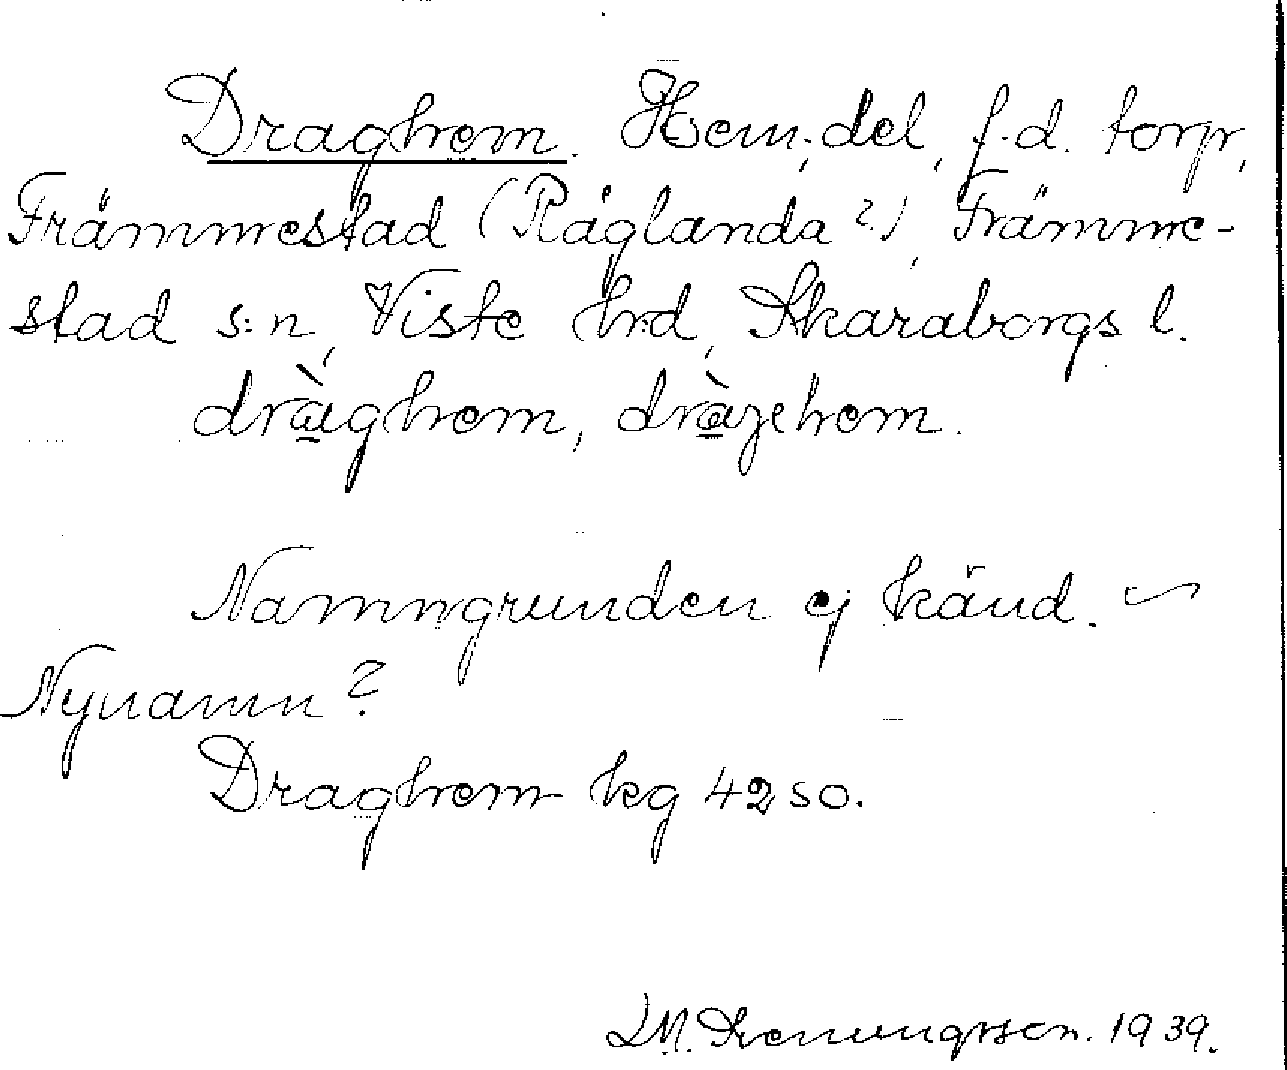 Draghem. Hem.del, f.d. torp,
Främmestad (Råglanda?), Främme-
stad s:n, Viste hrd, Skaraborgs l.
dràghem, dràʒehem.
Namngrunden ej känd. –
Nynamn?
Draghem kg 4250.
1939.